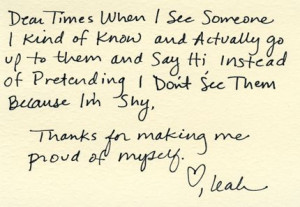 Dear Times When I See Someone
I Kind of Know and Actually go
up to them and Say Hi Instead
of Pretending I Don't See Them
Because I'm Shy,
Thanks for making me
proud of myself.
♡, Leah